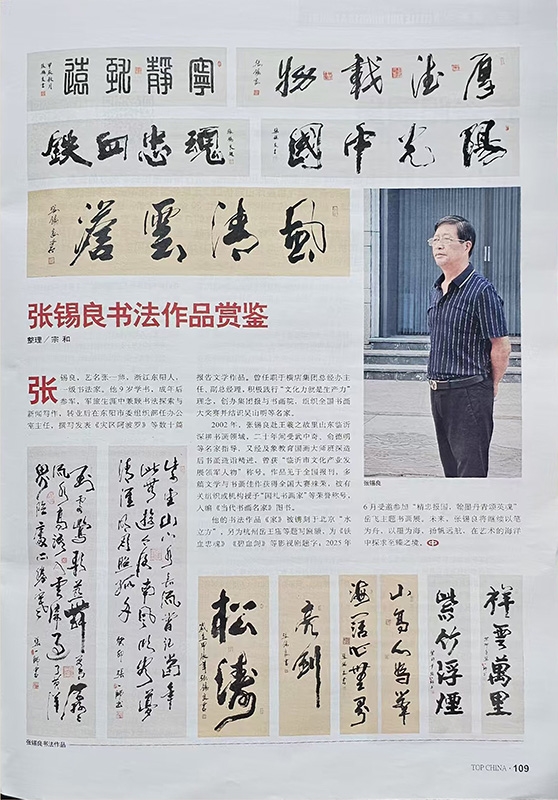 寧靜致遠
厚德載物
鐵血忠魂
陽光中國
風清雲澹
张锡良书法作品赏鉴
整理／宗 和
张锡良，艺名张一狮，浙江东阳人，
一级书法家。他9岁学书，成年后
参军，军旅生涯中兼顾书法探索与
新闻写作，转业后在东阳市委组织部任办公
室主任，撰写发表《灾区阿波罗》等数十篇
报告文学作品。曾任职于横店集团总经办主
任、副总经理，积极践行“文化力就是生产力”
理念，创办集团报与书画院，组织全国书画
大奖赛并结识吴山明等名家。
2002年，张锡良赴王羲之故里山东临沂
深耕书画领域，二十年间受武中奇、俞德明
等名家指导，又经及象教育国画大师班深造
后书画造诣精进，曾获“临沂市文化产业发
展领军人物”称号。作品见于全国报刊，多
篇文学与书画佳作获得全国大赛殊荣，被有
关组织或机构授予“国礼书画家”等荣誉称号，
入编《当代书画名家》图书。
他的书法作品《家》被镌刻于北京“水
立方”，另为杭州岳王庙等题写匾额，为《铁
血忠魂》《碧血剑》等影视剧题字。2025年
张锡良
6月受邀参加“精忠报国，翰墨丹青颂英魂”
岳飞主题书画展。未来，张锡良将继续以笔
为舟，以墨为海，扬帆远航，在艺术的海洋
中探求至臻之境。
松濤
亮剑
海阔心無界
山高人為峰
紫竹浮煙
祥雲萬里
张锡良书法作品
TOP CHINA · 109